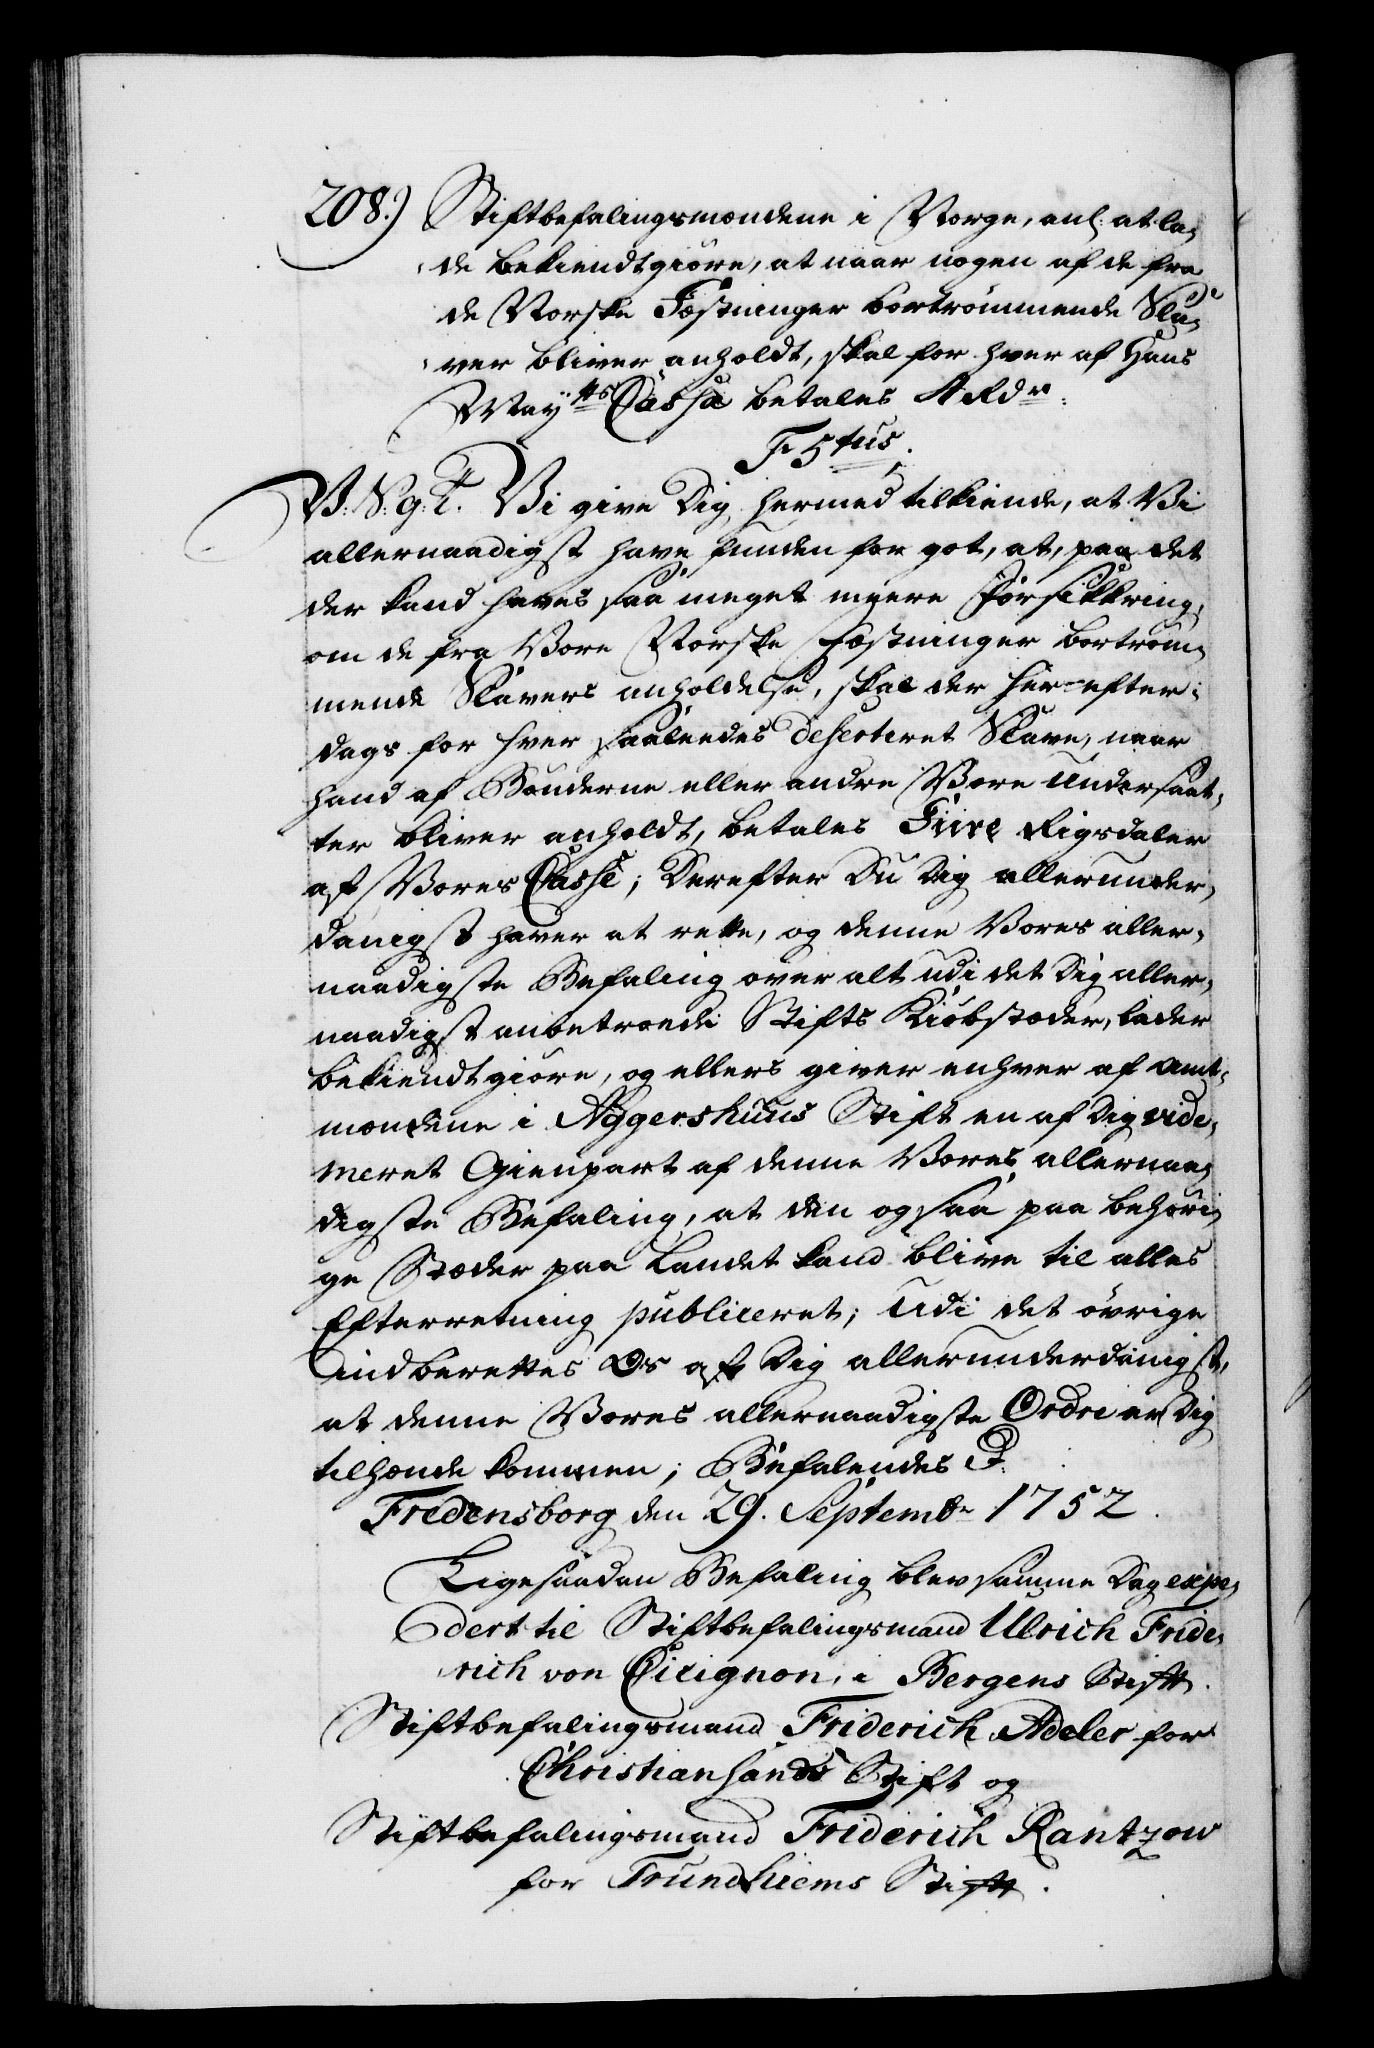 208.) Stiftbefalingsmændene i Norge, anl: at la-
de bekiendtgiöre, at naar nogen af de fra
de Norske Fæstninger bortrömmende Sla-
ver bliver anholdt, skal for hver af Hans
Maÿtts Cassa betales 4 Rdr.
F 5tus.
V: S. g: T. Vi give Dig hermed tilkiende, at Vi
allernaadigst have funden for got, at, paa det
der kand haves saa meget meere Forsikkring,
om de fra Vore Norske Fæstninger bortröm-
mende Slavers anholdelse, skal der her efter-
dags for hver saaleedes deserteret Slave, naar
hand af Bönderne eller andre Vore Undersaat-
ter bliver anholdt, betales Fiire Rigsdaler
af Vores Casse; Derefter Du Dig allerunder-
danigst haver at rette, og denne Vores aller-
naadigste Befaling over alt udi det Dig aller-
naadigst anbetroede Stifts Kiöbstæder, lader
bekiendtgiöre, og ellers giver enhver af Amt-
mændene i Aggershuus Stift en af Dig vide-
meret Gienpart af denne Vores allernaa-
digste Befaling, at den ogsaa paa behöri-
ge Stæder paa Landet kand blive til alles
Efterretning publiceret; Udi det övrige
indberettes Os af Dig allerunderdanigst,
at denne Vores allernaadigste Ordre er Dig
tilhænde kommen; Befalendes D.
Fredensborg den 29. Septembr 1752.
Ligesaadan Befaling blev samme Dag expe-
dert til Stiftbefalingsmand Ulrich Fride-
rich von Cicignon, i Bergens Stift.
Stiftbefalingsmand Friderich Adeler for
Christiansands Stift og
Stiftbefalingsmand Friderich Rantzow
for Trundhiems Stift.